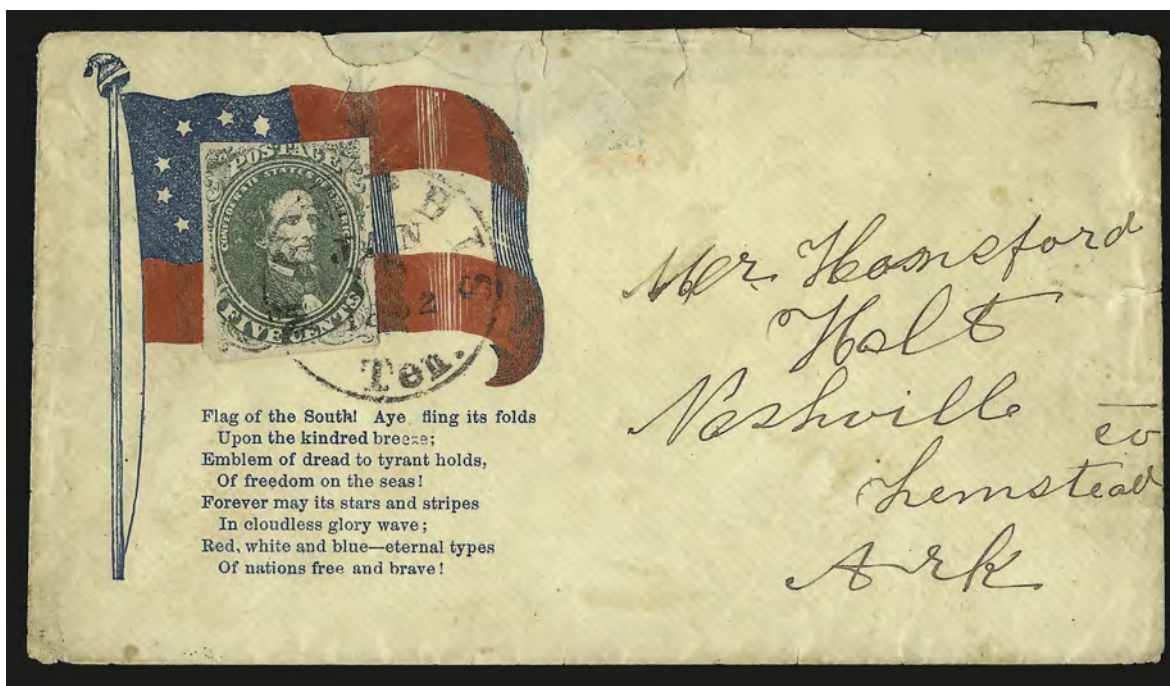 POSTAGE
CONFEDERATE STATES OF AMERICA
FIVE CENTS
JAN
Ten.
Flag of the South! Aye fling its folds
Upon the kindred breeze;
Emblem of dread to tyrant holds,
Of freedom on the seas!
Forever may its stars and stripes
In cloudless glory wave;
Red, white and blue—eternal types
Of nations free and brave!
Mr. Hansford
Holt
Nashville
Hemstead co
Ark